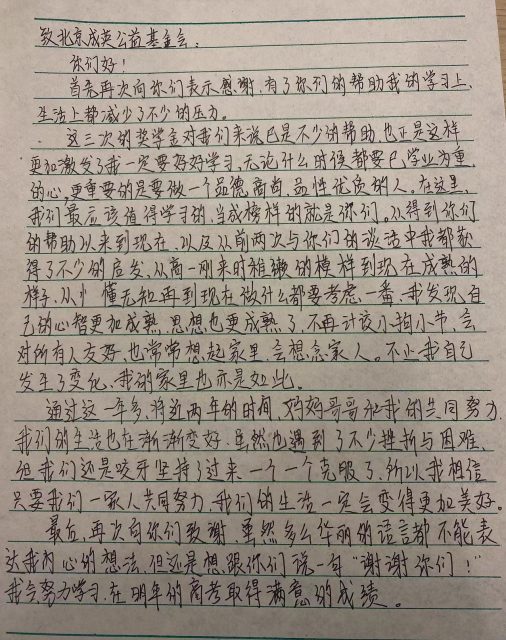 致北京成英公益基金会:
你们好!
首先再次向你们表示感谢,有了你们的帮助我的学习上,
生活上都减少了不少的压力。
这三次的奖学金对我们来说已是不少的帮助,也正是这样
更加激发了我一定要好好学习,无论什么时候都要已学业为重
的心,更重要的是要做一个品德高尚,品性优质的人。在这里,
我们最应该值得学习的,当成榜样的就是你们。从得到你们
的帮助以来到现在,以及从前两次与你们的谈话中我都获
得了不少的启发,从高一刚来时稚嫩的模样到现在成熟的
样子,从懵懂无知再到现在做什么都要考虑一番,我发现,自
己的心智更加成熟,思想也更成熟了,不再计议小拘小节,会
对所有人友好,也常常想起家里,会想念家人。不止我自己
发生了变化,我的家里也亦是如此。
通过这一年多,将近两年的时间,妈妈哥哥和我的共同努力,
我们的生活也在渐渐变好,虽然也遇到了不少挫折与困难,
但我们还是咬牙坚持了过来,一个一个克服了,所以我相信
只要我们一家人共同努力,我们的生活一定会变得更加美好。
最后,再次向你们致谢,虽然多么华丽的语言都不能表
达我内心的想法,但还是想跟你们说一句“谢谢你们!”
我会努力学习,在明年的高考取得满意的成绩。